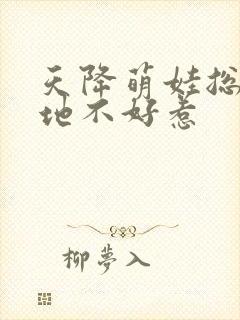 天降萌娃总
地不好惹
柳夢入